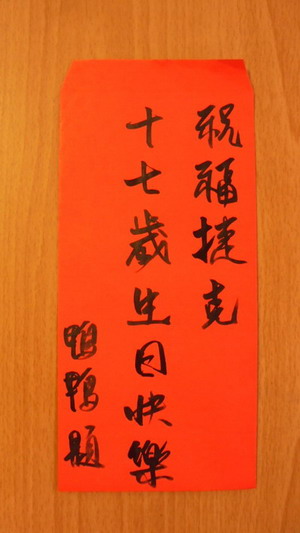 祝福捷克
十七歲生日快樂
鴨鴨題